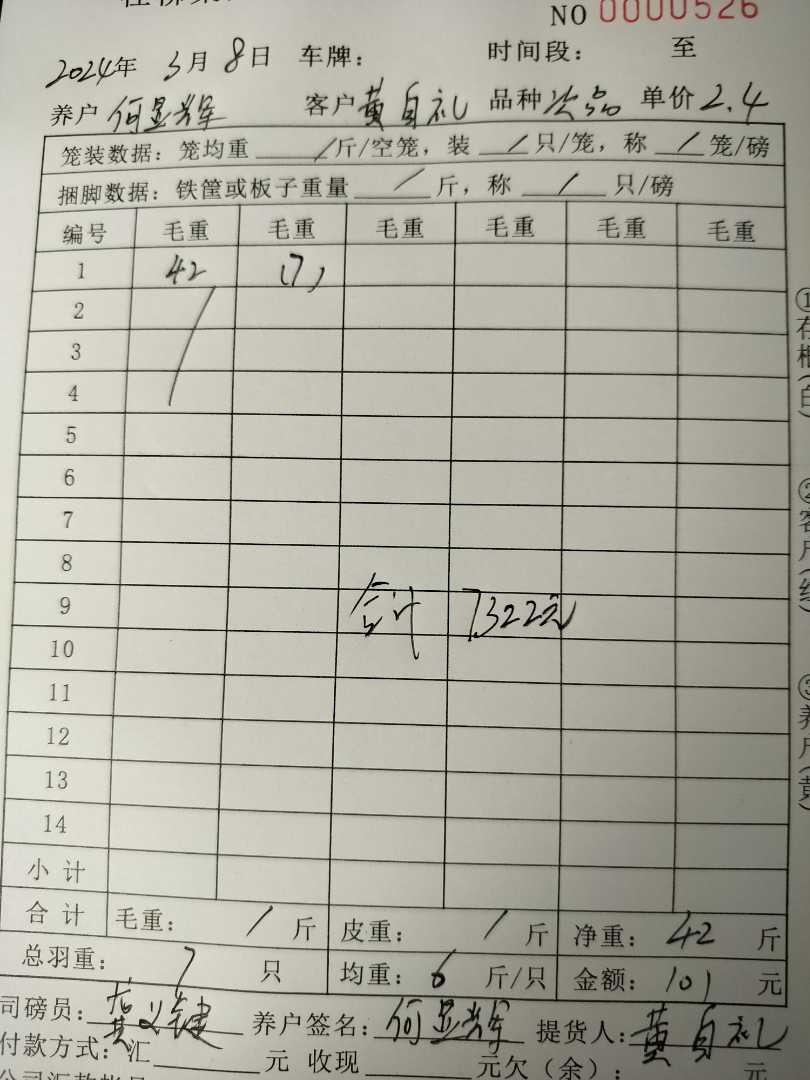 NO 0000526
2024年 3月 8日 车牌： 时间段： 至
养户 何显辉 客户 黄自礼 品种 次品 单价 2.4
笼装数据：笼均重 / 斤/空笼，装 / 只/笼，称 / 笼/磅
捆脚数据：铁筐或板子重量 / 斤，称 / 只/磅
编号 毛重 毛重 毛重 毛重 毛重 毛重
1 42 (7)
2
3
4
5
6
7
8
9 合计 7322元
10
11
12
13
14
小计
合计 毛重： / 斤 皮重： / 斤 净重： 42 斤
总羽重： 7 只 均重： 6 斤/只 金额： 101 元
司磅员： 养户签名： 何显辉 提货人： 黄自礼
付款方式：汇 元 收现 元欠（余）： 元